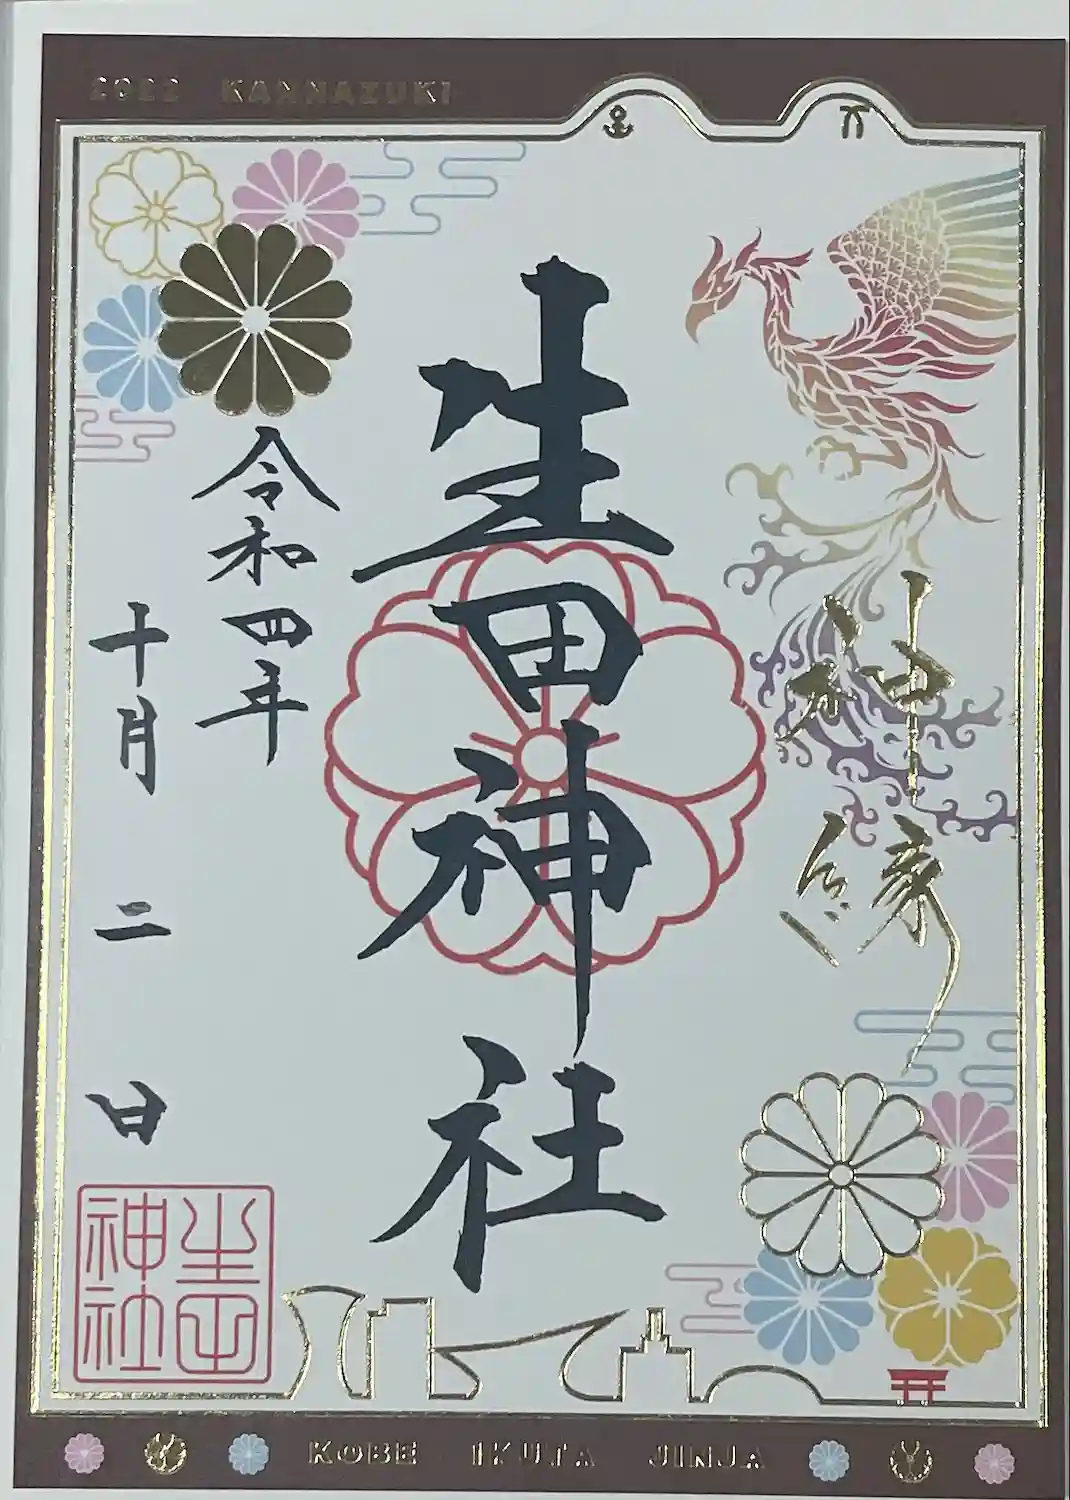 2022 KANNAZUKI
神縁
生田神社
令和四年
十月二日
生田
神社
KOBE IKUTA JINJA